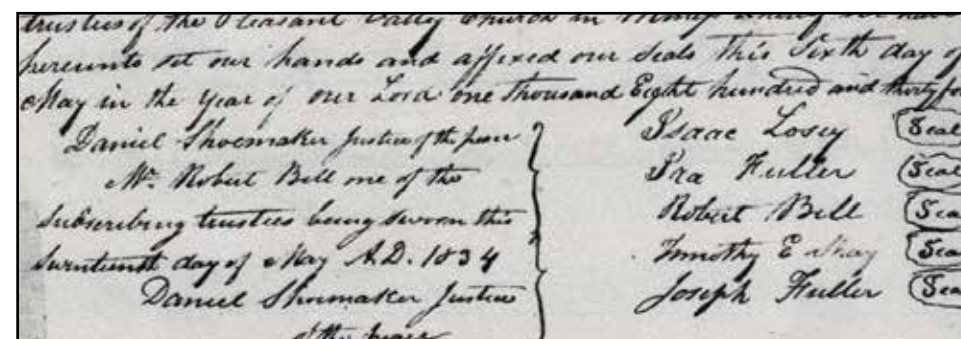 trustees of the Pleasant Valley Church in
hereunto set our hands and affixed our Seals this Sixth day of
May in the Year of our Lord one Thousand Eight hundred and thirty fo
Daniel Shoemaker Justice of the peace
Mr. Robert Bell one of the
Subscribing trustees being sworn this
day of May A.D. 1834
Daniel Shoemaker Justice
of the peace
Isaac Losey Seal
Ira Fuller Seal
Robert Bell Sea
Timothy E Sea
Joseph Fuller Sea